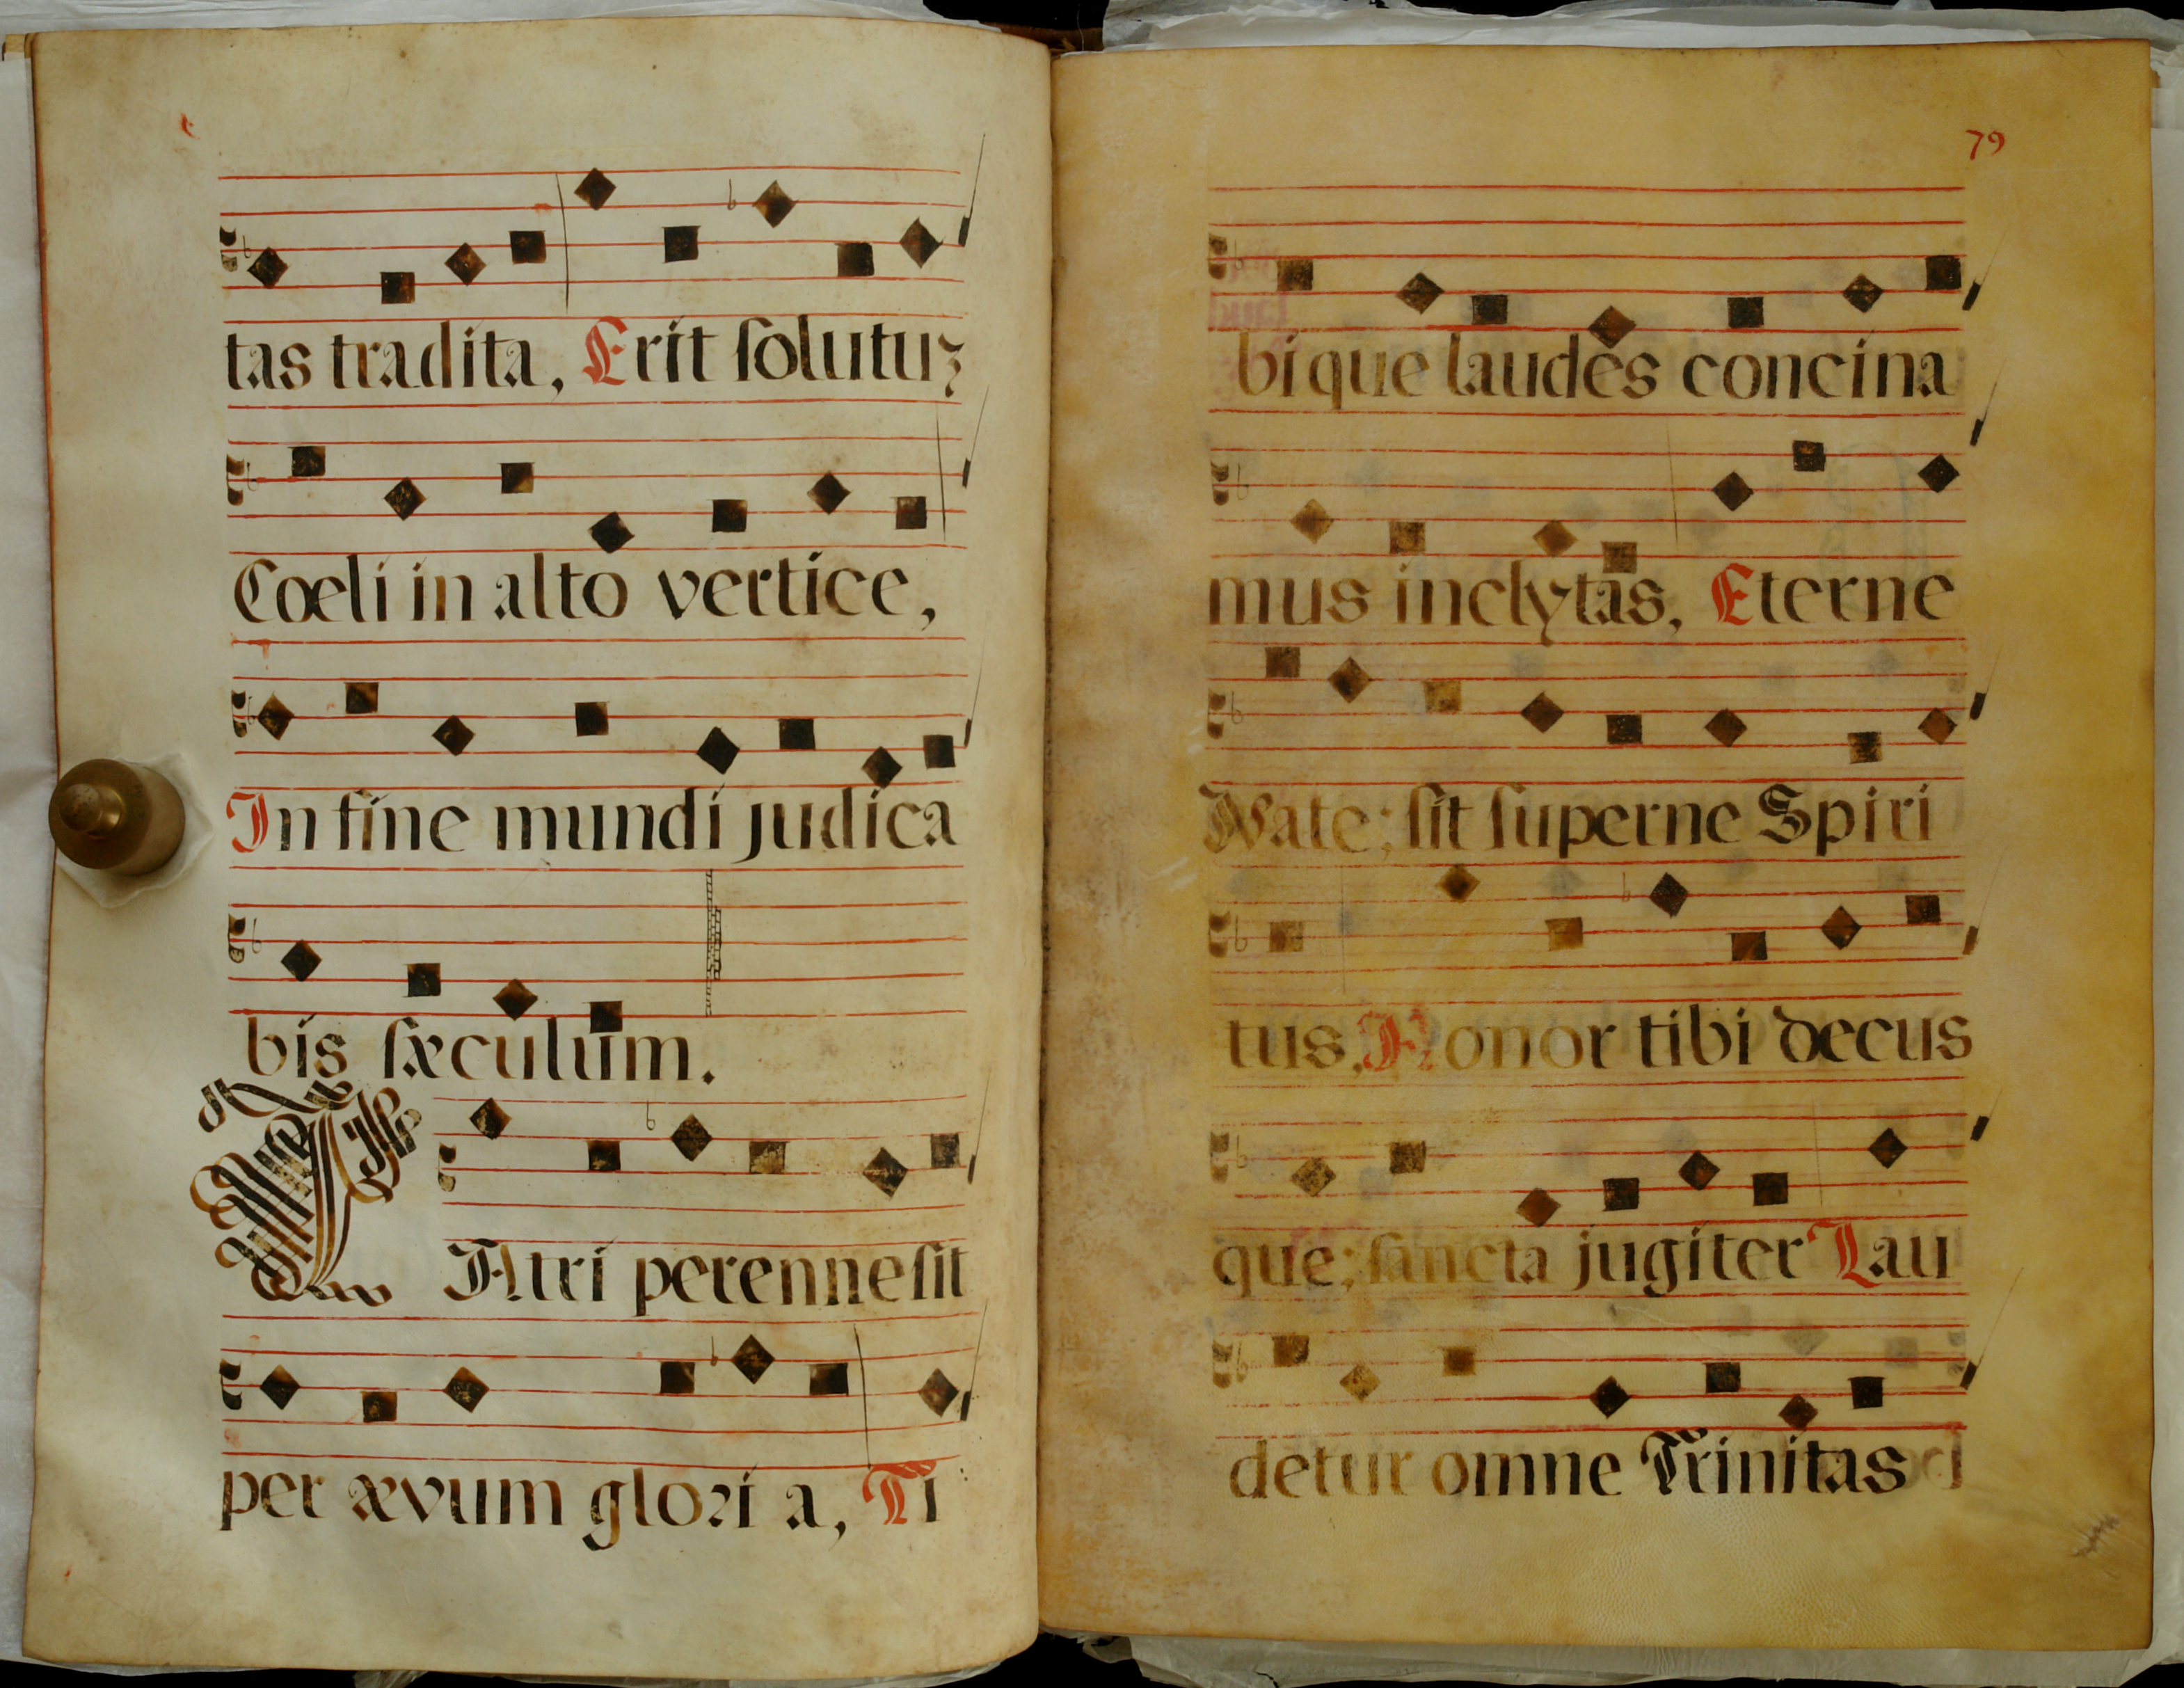 tas tradita, Erit ſolutuʒ
Coeli in alto vertice,
In fine mundi judica
bis ſæculum.
PAtri perenne ſit
per ævum glori a, Ti
79
bi que laudes concina
mus inclytas, Eterne
Nate; ſit ſuperne Spiri
tus, Honor tibi decus
que; ſancta jugiter Lau
detur omne Trinitas